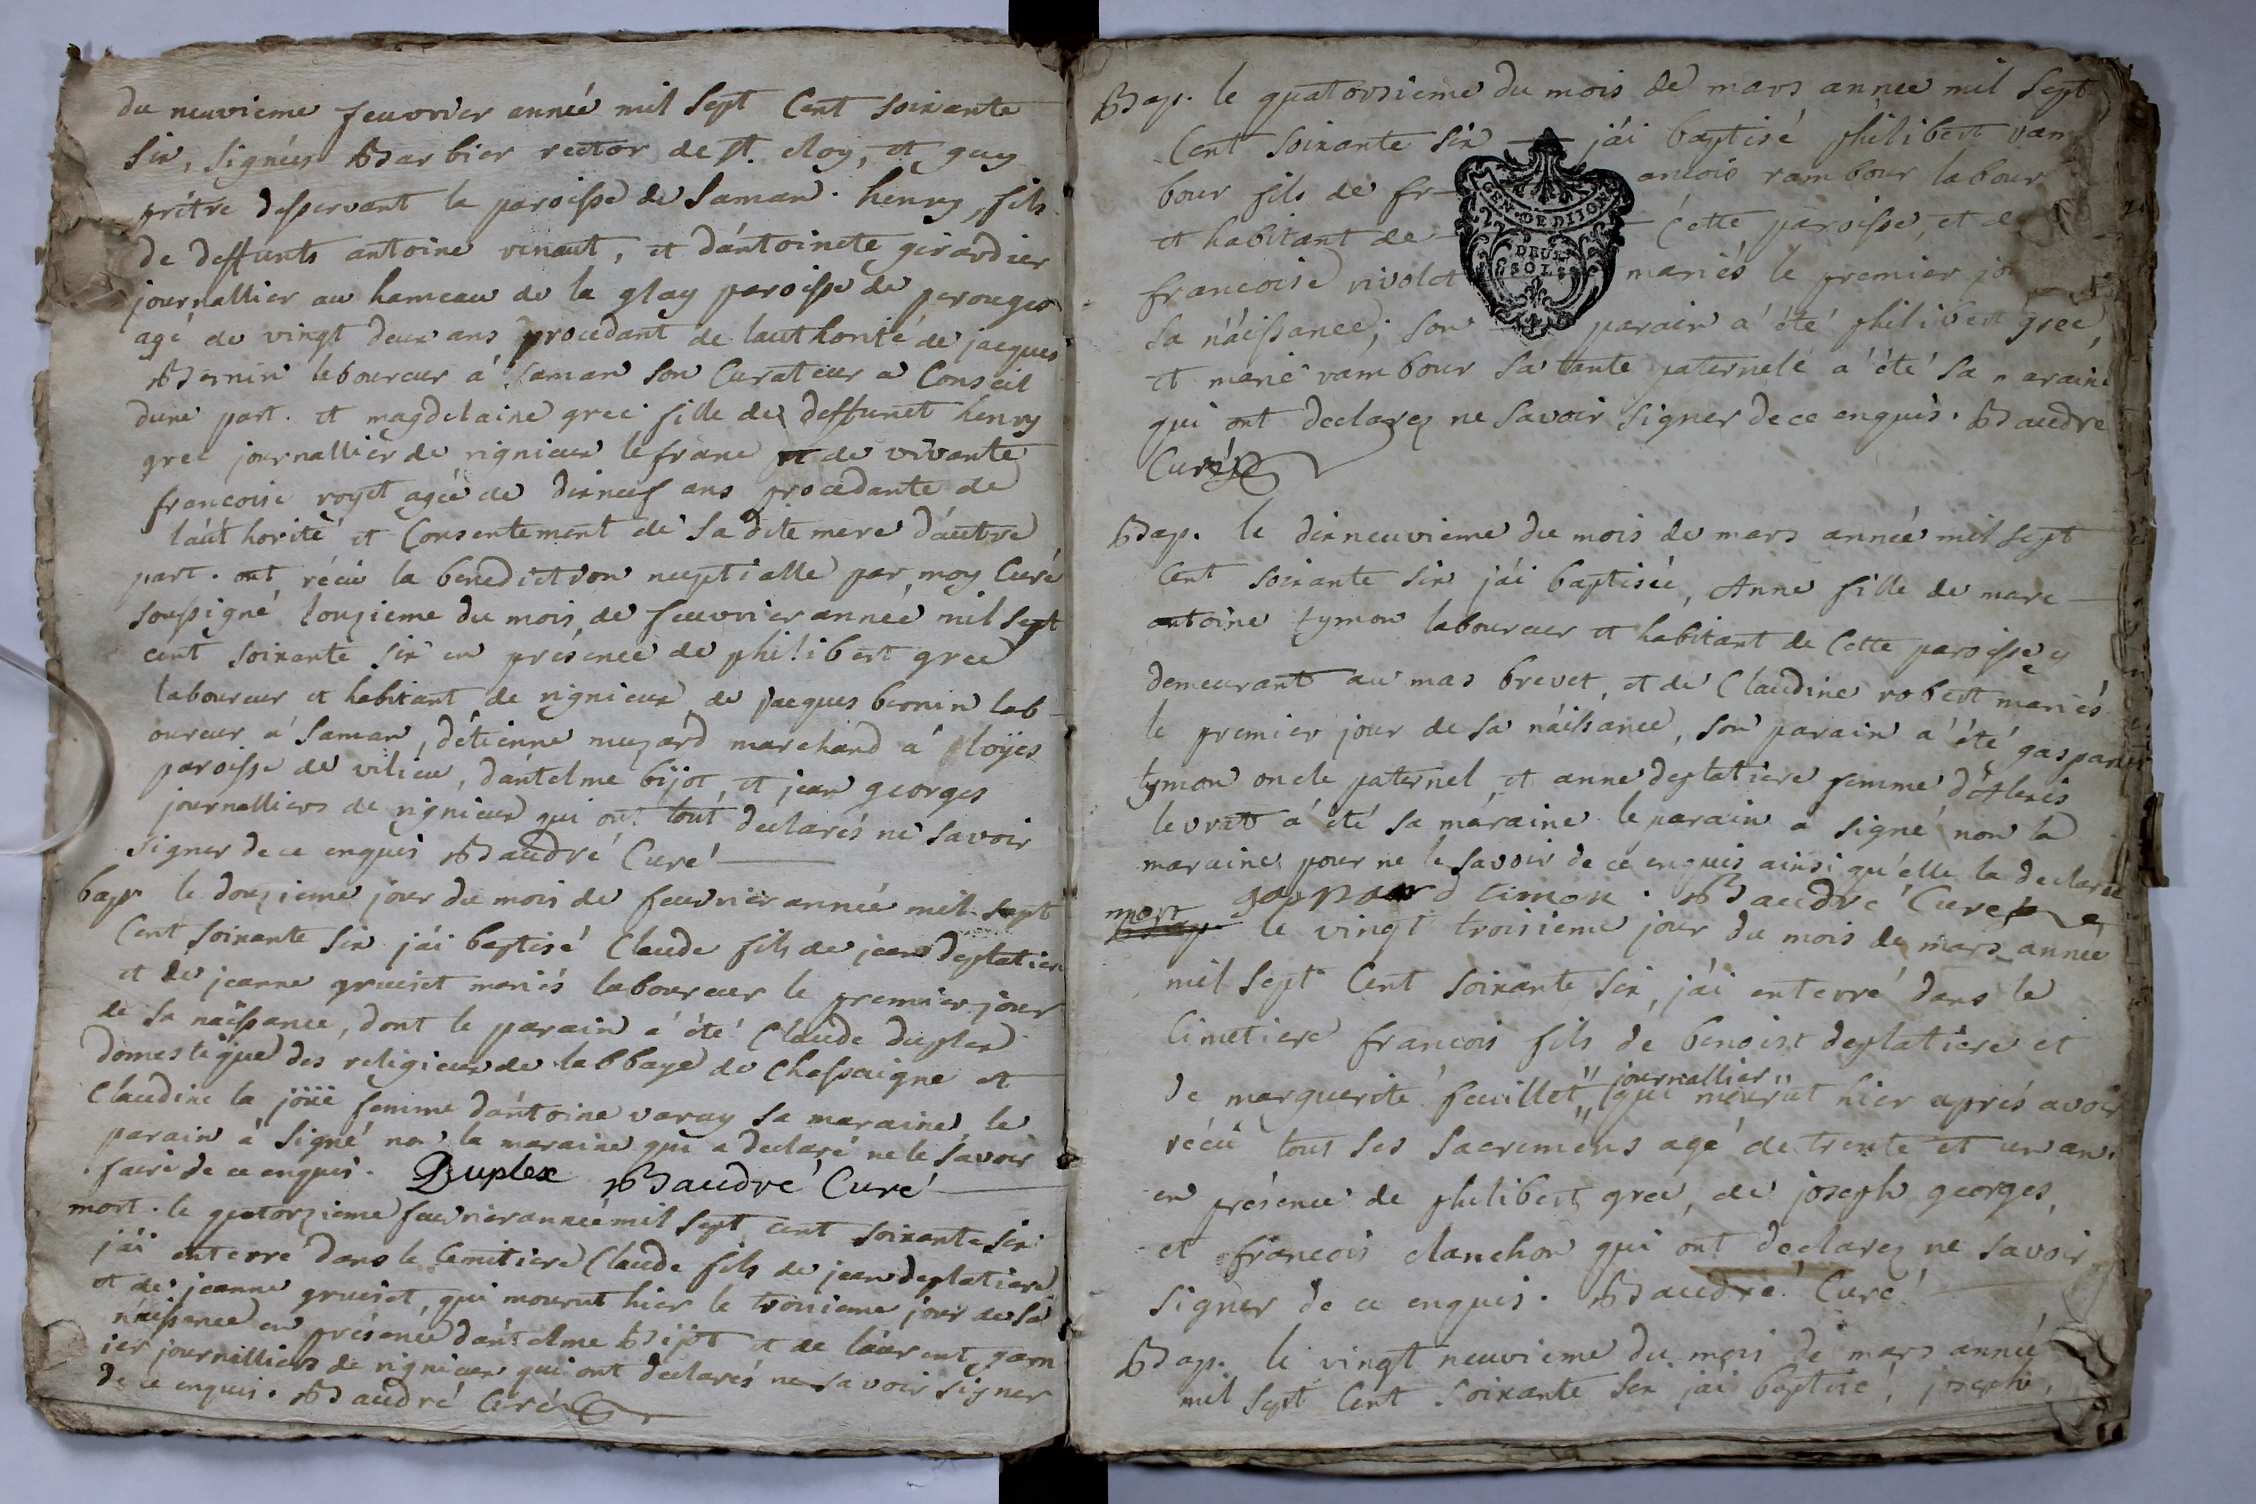 du neuvieme feuvrier année mil Sept Cent soixante
Six, signées Barbier rector de st. eloy, et guy
prêtre desservant la paroisse de Samans. henry, fils
de deffunts antoine venaut, et d'antoinete girardier
journallier au hameau de la glay paroisse de perouges
agé de vingt deux ans procedant de lauthorité de jacques
Bernin leboureur a Samans son Curateur a Conseil
dune part. et magdelaine greé fille de deffunct henry
greé journallier de rignieux le franc et de vivante
francoise royet agée de dixneuf ans procedante de
láuthorité et Consentement de sa dite mere d'autre
part. ont récû la benediction nuptialle par moy Curé
soussigné l'onzieme du mois de feuvrier année mil sept
cent soixante six en présence de philibert greé
laboureur et habitant de rignieux de jacques bernin lab
oureur a Samans, détienne muzard marchand a loyes
paroisse de vilieu, dántelme bijot, et jean georges
journalliers de rignieux qui ont tout declarés ne savoir
signer de ce enquis Baudré Curé
bap. le douzieme jour du mois de feuvrier année mil sept
Cent soixante six jái baptisé Claude fils de jean deplatiere
et de jeanne grueset mariés laboureur le premier jour
de sa náissance, dont le parain a été Claude duplex
domestique des religieux de labbaye de Chassaigne et
Claudine la joüe femme dántoine varay sa maraine, le
parain á signé non la maraine qui a declaré ne le savoir
faire de ce enquis. Duplex Baudré Curé
mort. le quatorzieme feuvrier année mil sept cent soixante six
jái enterré dans le Cemitiere Claude fils de jean deplatiere
et de jeanne grueset, qui mourut hier le troisieme jour de sa
náissance en présence dántelme Bijot et de láurent garn
ier journalliers de rignieux qui ont declarés ne savoir signer
de ce enquis. Baudré Curé
Bap. le quatorzieme du mois de mars année mil sept
Cent soixante six jái baptisé philibert ram
bour fils de fr ancois rambour labour
et habitant de Cette paroisse, et de
francoise rivolet mariés le premier jo
GEN. DE DIJON
DEUX
SOLS
sa náissance; son parain a été philibert greé,
et marie rambour sa tante paternelé a été sa maraine
qui ont declarez ne savoir signer de ce enquis. Baudré
Curé
Bap. le dixneuvieme du mois de mars année mil sept
Cent soixante six jái baptisée, Anne fille de marc
antoine tymon laboureur et habitant de Cette paroisse y
demeurant au mas brevet, et de Claudine robert mariés
le premier jour de sa náissance, son parain a été gaspard
tymon oncle paternel, et anne deplatiere femme d'Alexis
levrat á été sa máraine le parain a signé non la
maraine pour ne le savoir de ce enquis ainsi qu'elle la declaré
gaspard timon. Baudré Curé
mort Bap. le vingt troisieme jour du mois de mars année
mil sept Cent soixante six, jái enterré dans le
Cimetiere francois fils de benoist deplatiere et
journallier
de marguerite feuillet qui mourut hier aprés avoir
récû tout ses sacremens agé de trente et un an.
en présence de philibert greé, de joseph georges,
et francois clanchon qui ont declarez ne savoir
signer de ce enquis. Baudré Curé
Bap. le vingt neuvieme du mois de mars année
mil sept Cent soixante six jái baptisé, joseph,